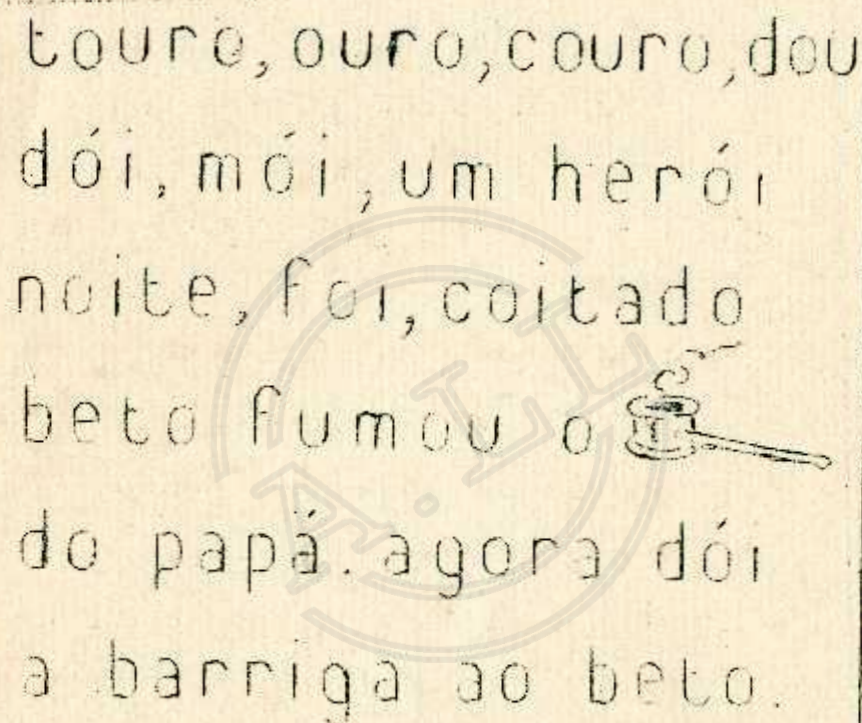 touro, ouro, couro, dou
dói, mói, um herói
noite, foi, coitado
beto fumou o
do papá. agora dói
a barriga ao beto.
A.LL